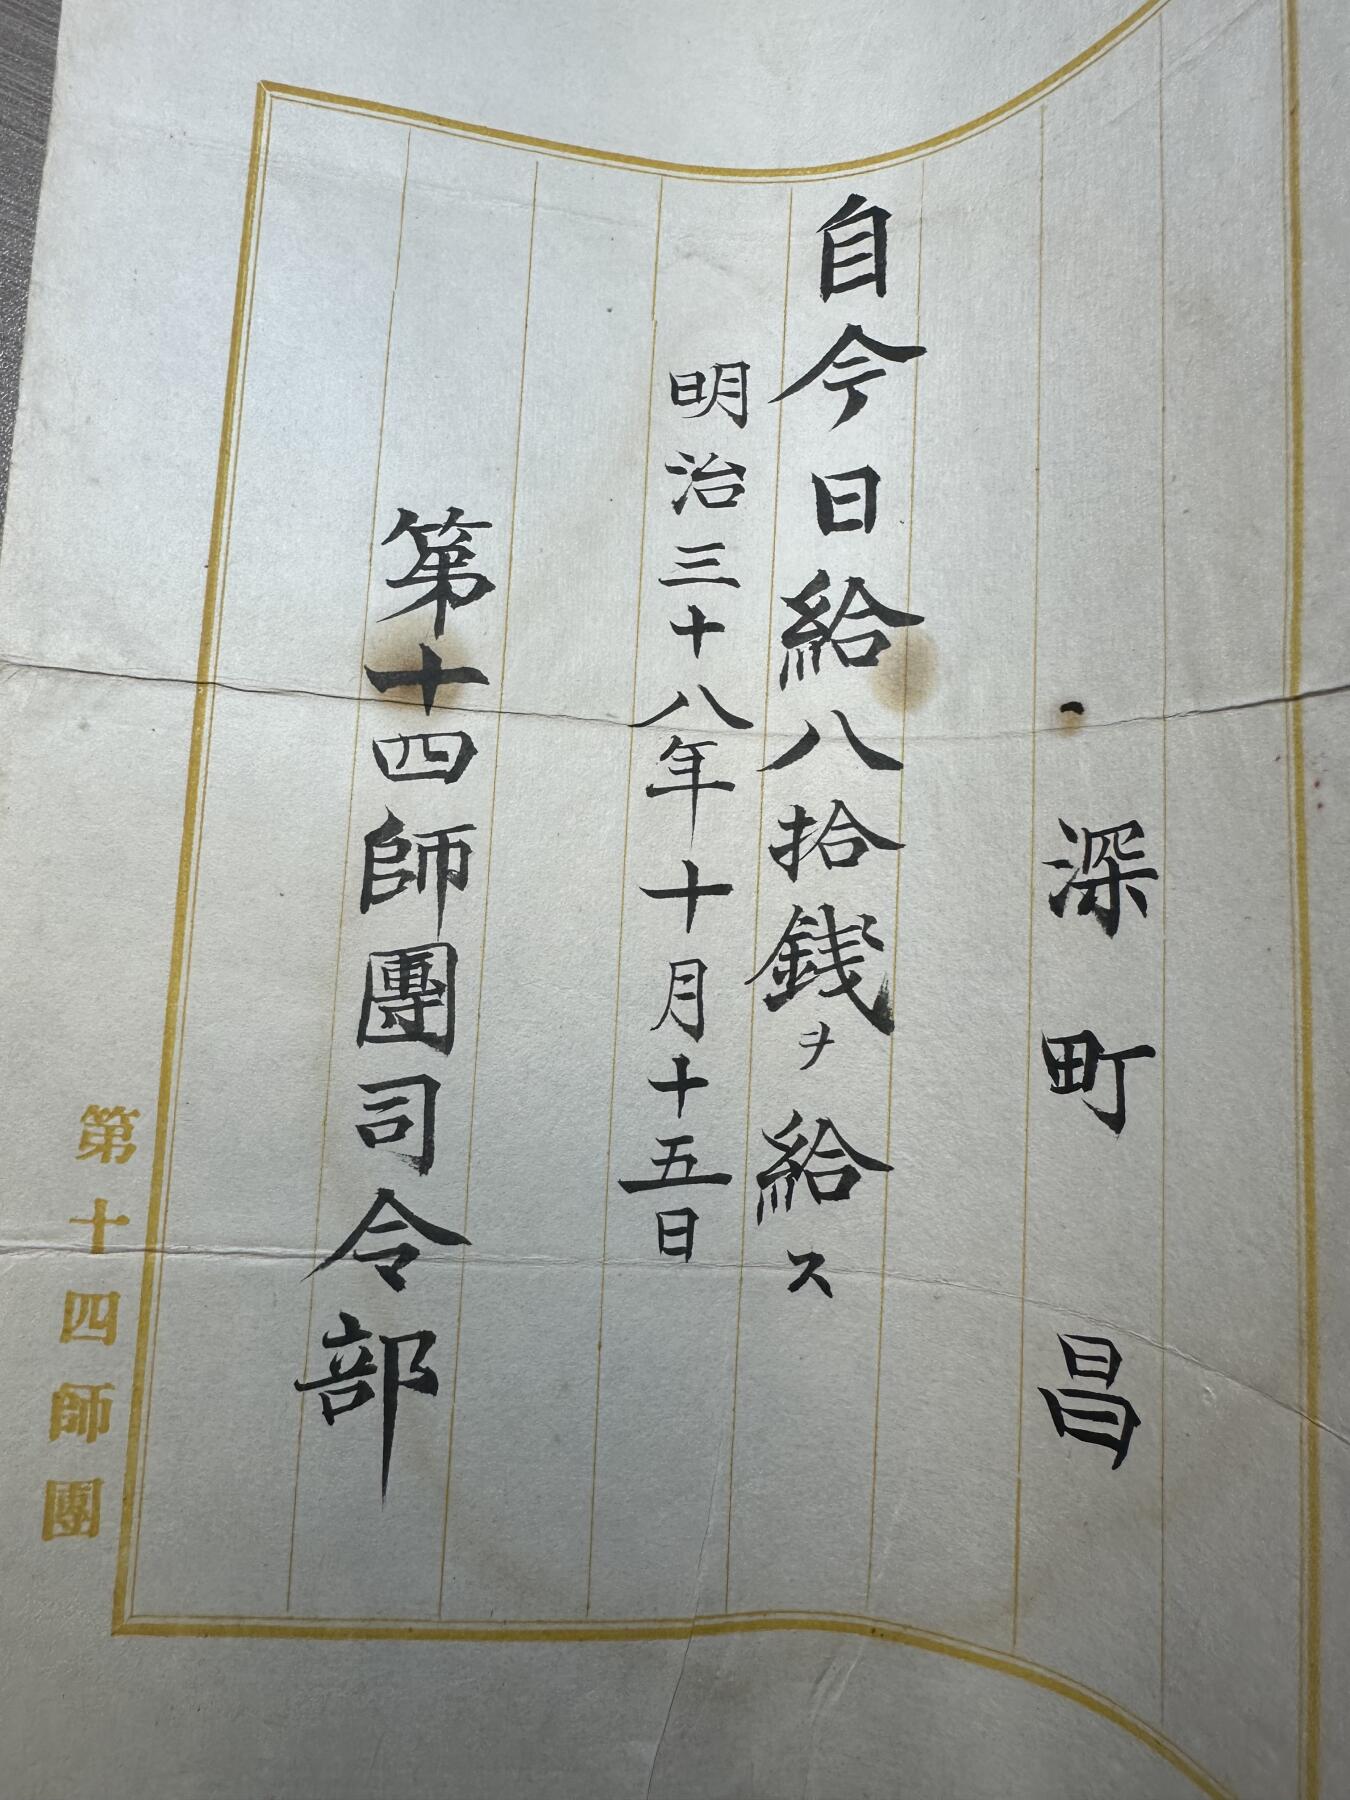 深町昌
自今日給八拾銭ヲ給ス
明治三十八年十月十五日
第十四師團司令部
第十四師團